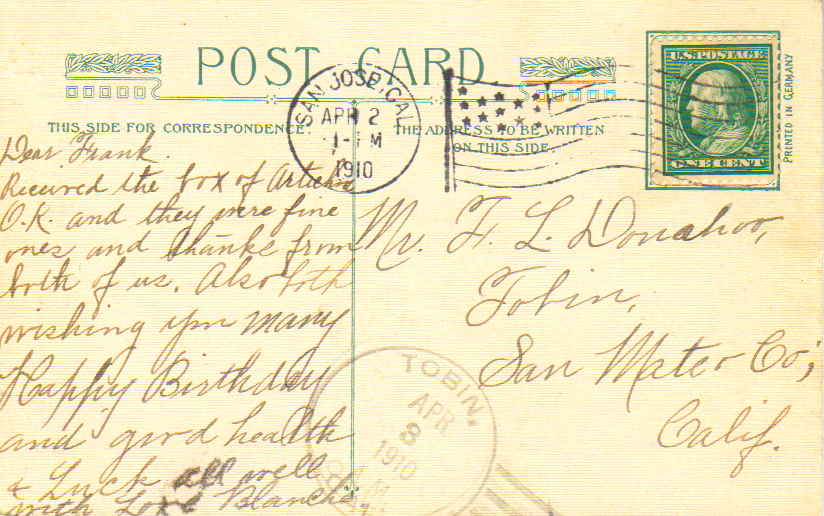 POST CARD
THIS SIDE FOR CORRESPONDENCE.
THE ADDRESS TO BE WRITTEN
ON THIS SIDE.
SAN JOSE, CAL.
APR 2
1910
U.S. POSTAGE
ONE CENT
PRINTED IN GERMANY
Dear Frank.
Received the box of
O.K. and they were fine
ones and thanks from
both of us. Also both
wishing you many
Happy Birthday
and good health
& Luck all well
with Love Blanche.
Mr. F. L. Donahoo,
Tobin,
San Mateo Co;
Calif.
TOBIN.
APR
8
1910